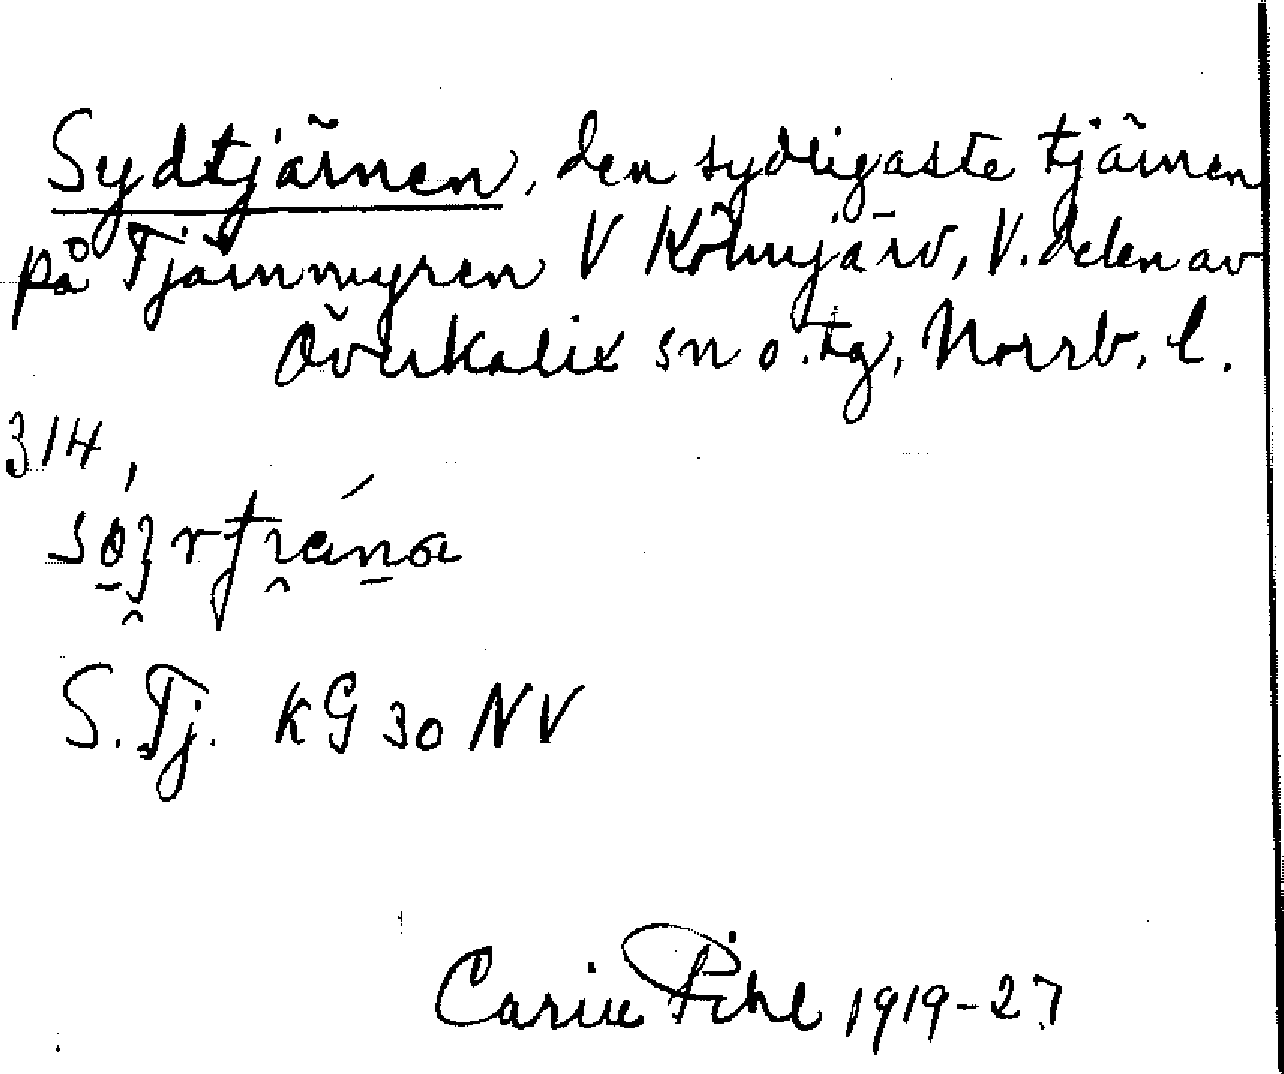 Sydtjärnen, den sydligaste tjärnen
på Tjärnmyren V Kölmjärv, V. delen av
Överkalix sn o. tg, Norrb. l.
314,
S. Tj. KG 30 NV
Carin Pihl 1919-27